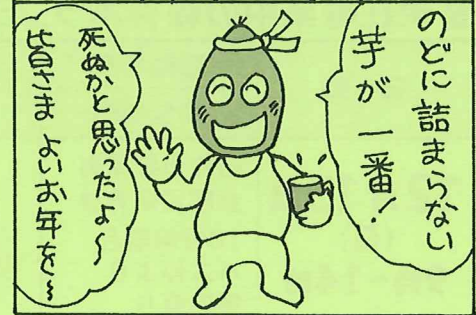 のどに詰まらない
芋が一番!
死ぬかと思ったよ~
皆さま よいお年を~